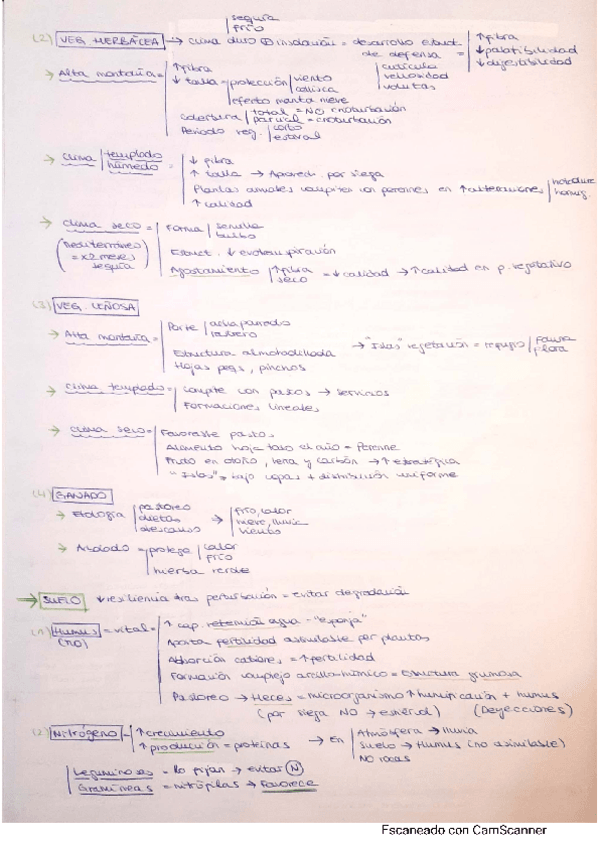 sequía
frío
(2) VEG. HERBÁCEA → clima duro ⊕ insolación = desarrollo estruct. de defensa = ↑ fibra
↓ palatibilidad
↓ digestibilidad
cutícula
vellosidad
volutas
→ Alta montaña = ↑ fibra
↓ talla = protección viento
ventisca
efecto manta nieve
Cobertura total = NO crioturbación
parcial = crioturbación
Periodo veg. corto
estival
→ Clima templado
húmedo = ↓ fibra
↑ talla → Aprovech. por siega
Plantas anuales compiten con perennes en ↑ alteraciones
↑ calidad
→ Clima seco = Forma semilla
bulbo
(Mediterráneo = x2 meses sequía)
Estruct. ↓ evotranspiración
Agostamiento ↑ fibra
seco = ↓ calidad → ↑ calidad en p. vegetativo
(3) VEG. LEÑOSA
→ Alta montaña = Porte achaparrado
rastrero
Estructura almohadillada → "Islas" vegetación = refugio fauna
flora
Hojas peqs, pinchos
→ Clima templado = compite con pastos → Servicios
Formaciones lineales
→ Clima seco = Favorable pastos
Alimento hoja todo el año = Perenne
Fruto en otoño, leña y carbón → ↑ estratégica
"Islas" = bajo copas + distribución uniforme
(4) GANADO
→ Etología pastoreo
dietas
descanso → frío, calor
nieve, lluvia
viento
→ Arbolado = protege calor
frío
hierba verde
→ SUELO ↓ resiliencia tras perturbación = evitar degradación
(1) Humus = vital = ↑ cap. retención agua = "esponja"
Aporta fertilidad asimilable por plantas
Adsorción cationes = ↑ fertilidad
Formación complejo arcillo-húmico = Estructura grumosa
Pastoreo → Heces = microorganismo ↑ humificación + humus
(por siega NO → estiércol) (Deyecciones)
(2) Nitrógeno = ↑ crecimiento
↑ producción = proteínas → en Atmósfera → lluvia
Suelo → Humus (no asimilable)
NO rocas
Leguminosas = lo fijan → evitar N
Gramíneas = nitrófilas → Favorece
Escaneado con CamScanner